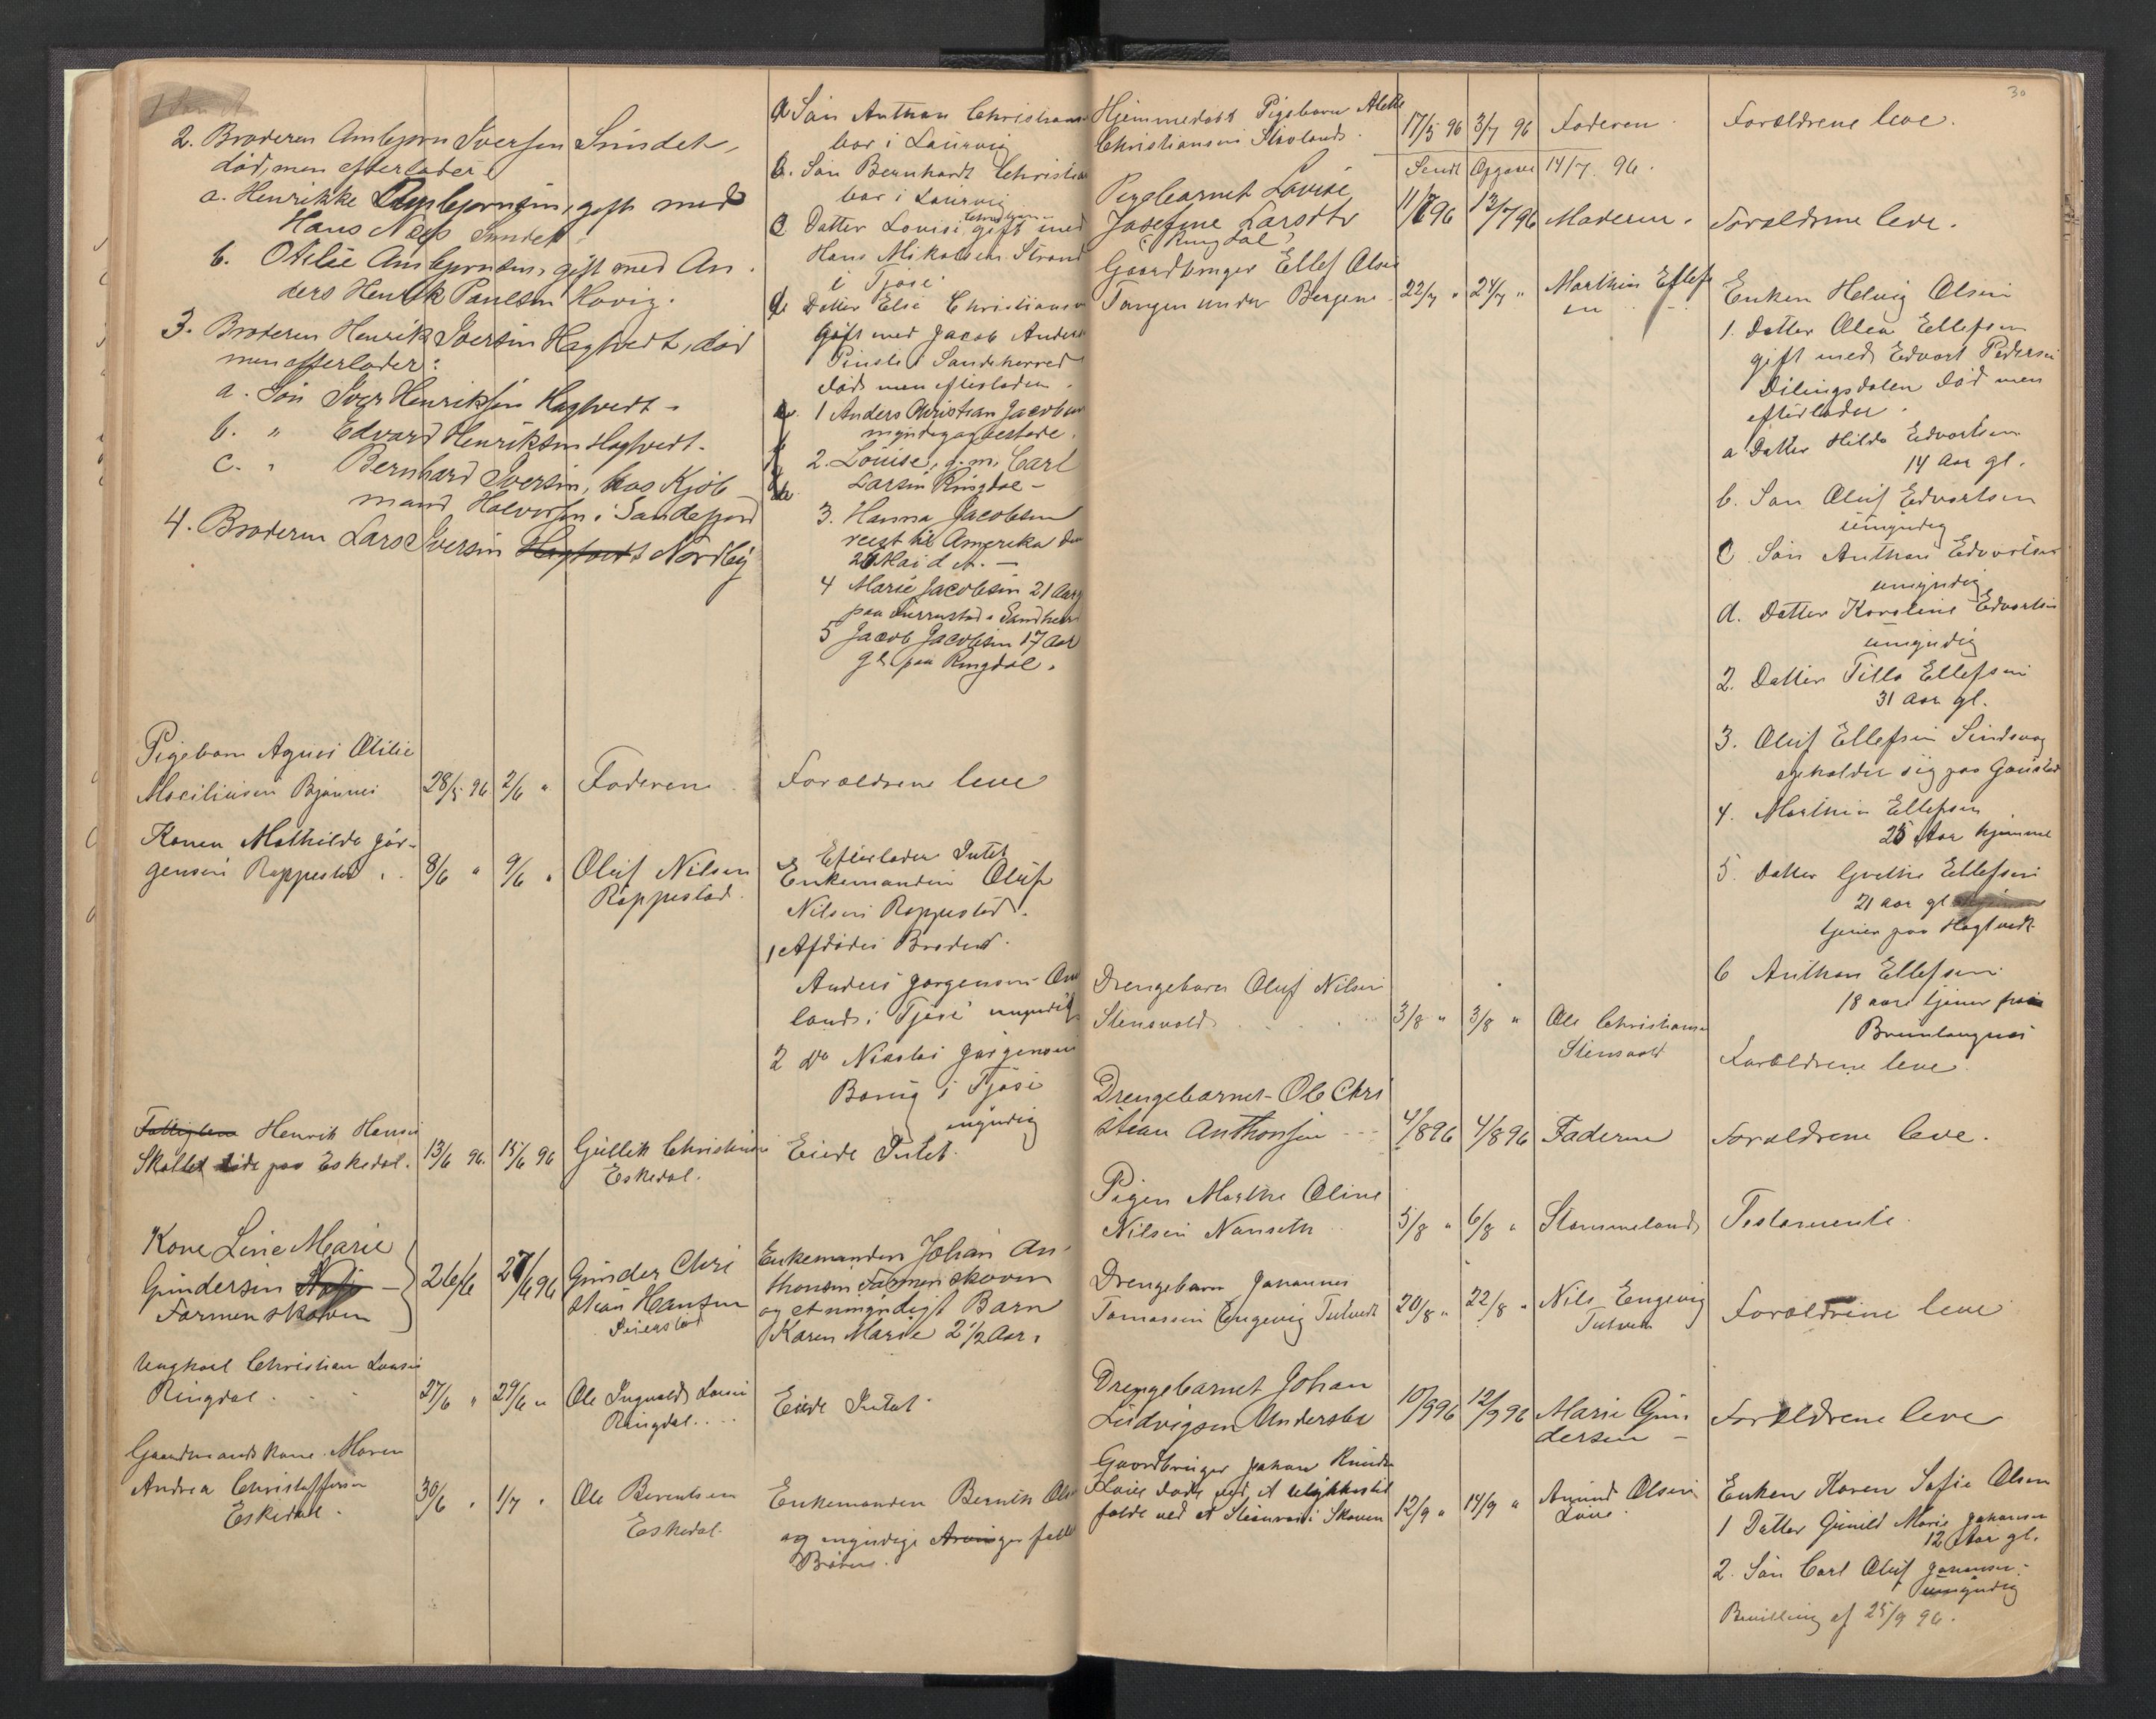 2. Broderen Ambjørn Iversen Sundet,
død, men efterlader
a. Henrikke Ambjørnsen, gift med
Hans Næss Sundet
b. Otilie Ambjørnsen, gift med An-
ders Henrik Paulsen Havig.
3. Broderen Henrik Iversen Hagtvedt, død
men efterlader:
a. Søn Iver Henriksen Hagtvedt -
b. " Edvard Henriksen Hagtvedt.
c. " Bernhard Iversen, hos Kjøb-
mand Halvorsen i Sandefjord
4. Broderen Lars Iversen Hagtvedt Nordby
a Søn Anthon Christians
bor i Laurvig
b. Søn Bernhardt Christia
bor i Laurvig
c Datter Lovise gift med
Hans Mikalsen Strand
i Tjøse
d Datter Else Christiansen
Gift med Jacob Anders
i Sandeherred
død men efterladen
1 Anders Christian Jacobsen
myndig
2. Louise, g. m. Carl
Larsen Ringdal -
3. Hanna Jacobsen
reist til Amerika den
20 Mai d. A. -
4 Marie Jacobsen 21 Aar
paa Furrustad i Sandeherr
5 Jacob Jacobsen 17 Aar
gl. paa Ringdal.
Pigebarn Agnes Otilie
Maciliusen Bjønnes 28/5 96 2/6 " Faderen Forældrene leve
Konen Mathilde Jør-
gensen Rappestad . 8/6 " 9/6 " Oluf Nilsen
Rappestad.
Efterlader Intet
Enkemanden Oluf
Nilsen Rappestad.
1 Afdødes Broder
Anders Jørgensen
land i Tjøse myndig
2 Do Nicolai Jørgensen
Bonig i Tjøse
myndig
Henrik Hansen
Skallet paa Eskedal. 13/6 96. 15/6 96 Gullik Christiansen
Eskedal. Eiede Intet.
Kone Line Marie
Gundersen
Farmenskoven 26/6 27/6 96 Gunder Chri
stian Hansen
Seierstad
Enkemanden Johan An-
thonsen Farmenskoven
og et umyndigt Barn
Karen Marie 2 1/2 Aar.
Ungkarl Christian Larsen
Ringdal . . . 27/6 " 29/6 " Ole Ingvald Larsen
Ringdal . . . Eiede Intet.
Gaardmandskone Maren
Andrea Christoffersen
Eskedal. 30/6 " 1/7 " Ole Berentsen
Eskedal.
Enkemanden Bernth Ols
og myndige Arvinger
Børn.
30
Hjemmedøbt Pigebarn Alette
Christiansen Skovland. 17/5 96 3/7 96 Faderen Forældrene leve.
Sendt Opgave 14/7 96.
Pigebarnet Lovise
Josefine Larsdtr
(Ringdal) 11/7 96 13/7 96 Moderen. Forældrene leve.
Gaardbruger Ellef Olsen
Tangen under Bergene 22/7 " 24/7 " Marthin Ellefs
en
Enken Helvig Olsen
1. Datter Olea Ellefsen
gift med Edvart Pedersen
Dilingsdalen død men
efterlader.
a Datter Hilda Edvartsen
14 Aar gl.
b. Søn Oluf Edvartsen
umyndig
c Søn Anthon Edvartsen
umyndig
d. Datter Karoline Edvartsen
umyndig
2. Datter Tilla Ellefsen
31 Aar gl.
3. Oluf Ellefsen
opholder sig paa
4. Marthin Ellefsen
25 Aar hjemme
5. Datter Grethe Ellefsen
21 aar gl
tjener paa Hagtvedt
6 Anthon Ellefsen
18 aar tjener paa
Brunlangnes
Drengebarn Oluf Nilsen
Stensvold . . . 3/8 " 3/8 " Ole Christiansen
Stensvold Forældrene leve.
Drengebarnet Ole Chri
stian Anthonsen - - - 4/8 96 4/8 96 Faderen Forældrene leve.
Pigen Marthe Oline
Nilsen Nanseth 5/8 " 6/8 " Stammeland Testamente.
Drengebarn Johannes
Tomassen Engevig Tutvedt 20/8 " 22/8 " Nils Engevig
Tutvedt Forældrene leve
Drengebarnet Johan
Ludvigsen Undersbo 10/9 96 12/9 96 Marie Gun
dersen - Forældrene leve
Gaardbruger Johan Knuds
Løve døde ved et ulykkestil
fælde ved et Stenras i Skoven 12/9 " 14/9 " Amund Olsen
Løve.
Enken Karen Sofie Olsen
1 Datter Gunild Marie Johansen
12 Aar gl.
2. Søn Carl Oluf Johansen
umyndig
Bevilling af 25/9 96.